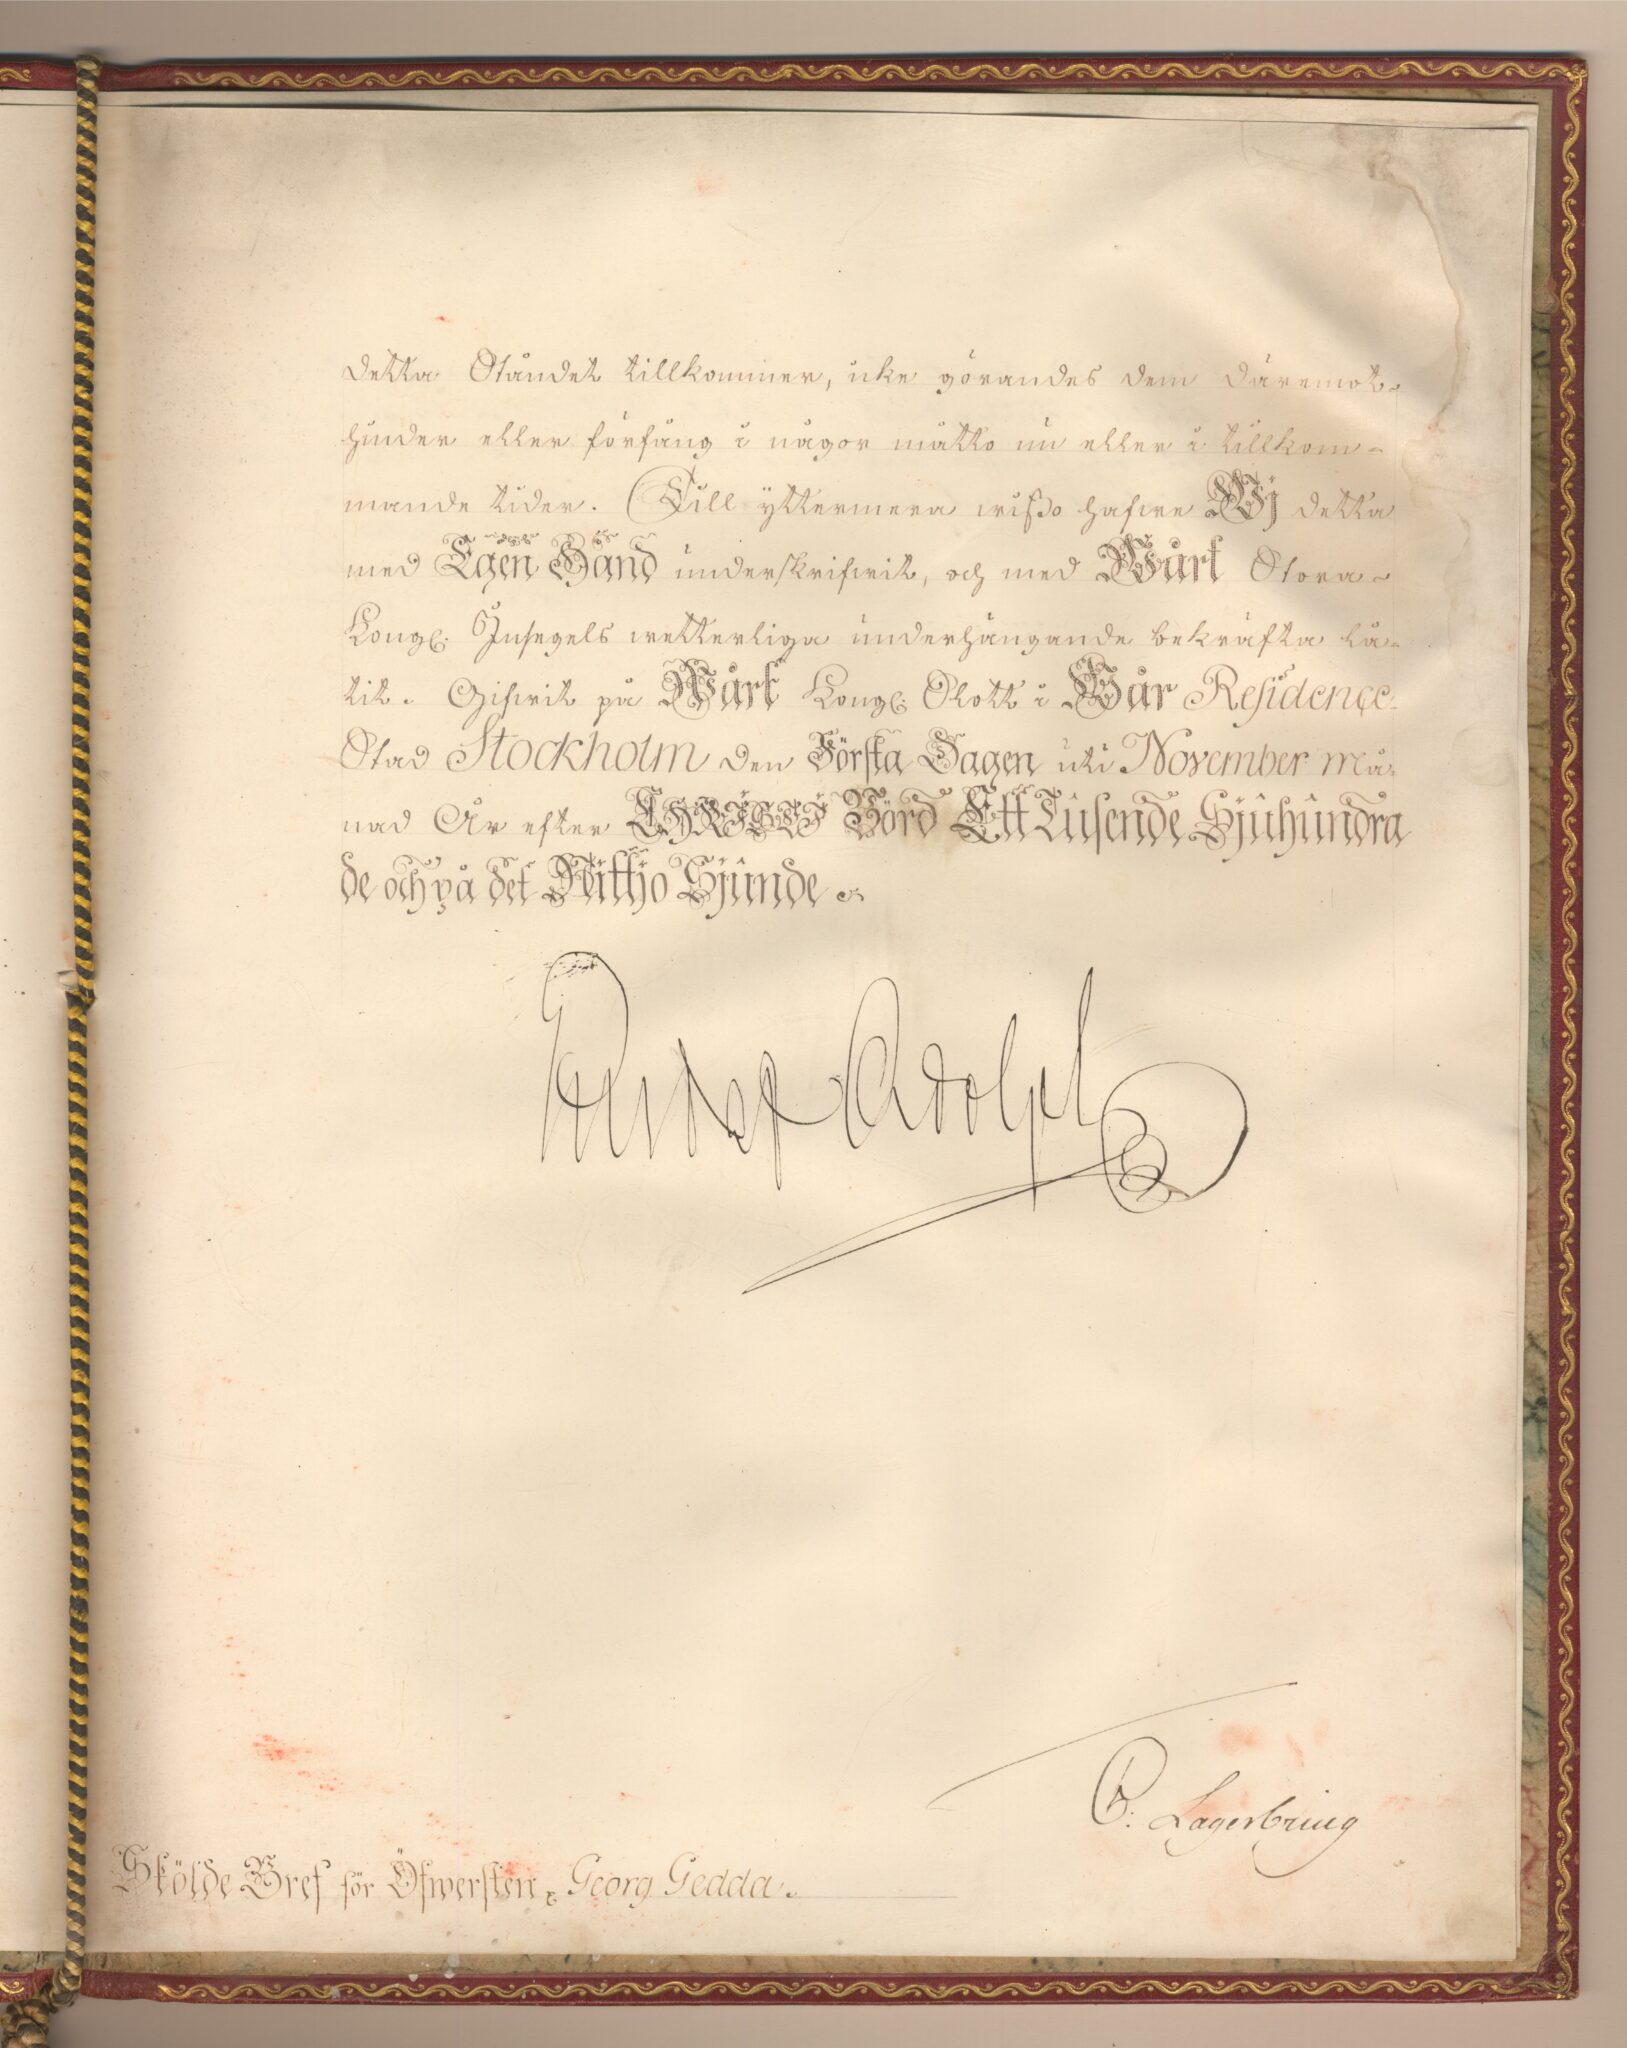 detta Ståndet tillkommer, icke görandes dem däremot-
hinder eller förfång i någor måtto nu eller i tillkom-
mande tider. Till yttermera wißo hafwe Wj detta
med Egen Hand underskrifwit, och med Wårt Stora-
Kongl. Insegels wetterliga underhängande bekräfta lå-
tit. Gifwit på Wårt Kongl. Slott i Wår Residence-
Stad Stockholm den Första Dagen uti November Må-
nad År efter CHRISTI Börd Ett Tusende Sjuhundra
de och på det Nittjo Sjunde.
Gustaf Adolph
C: Lagerbring
Skölde Bref för Öfwersten Georg Gedda.